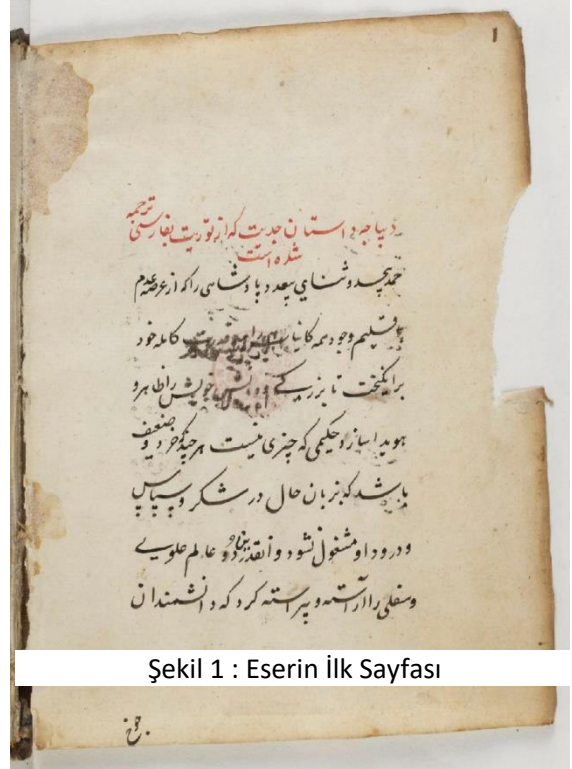 1
دیباجه داستان جدیت که از توریت بفارسی ترجمه
شده است
حمد بیحد و ثنای بیعد و پادشاهی را که از عرصه عدم
باقلیم وجود همه کاینات را قدرت کامله خود
برانگیخت تا بزرگی خویش را ظاهر و
هویدا سازد حکیمی که چیزی نیست هر چند که خرد و ضعیف
باشد که بزبان حال در شکر و سپاس
و درود او مشغول نشود و انقدر دو عالم علوی
و سفلی را آراسته و پیراسته کرد که دانشمندان
Şekil 1 : Eserin İlk Sayfası